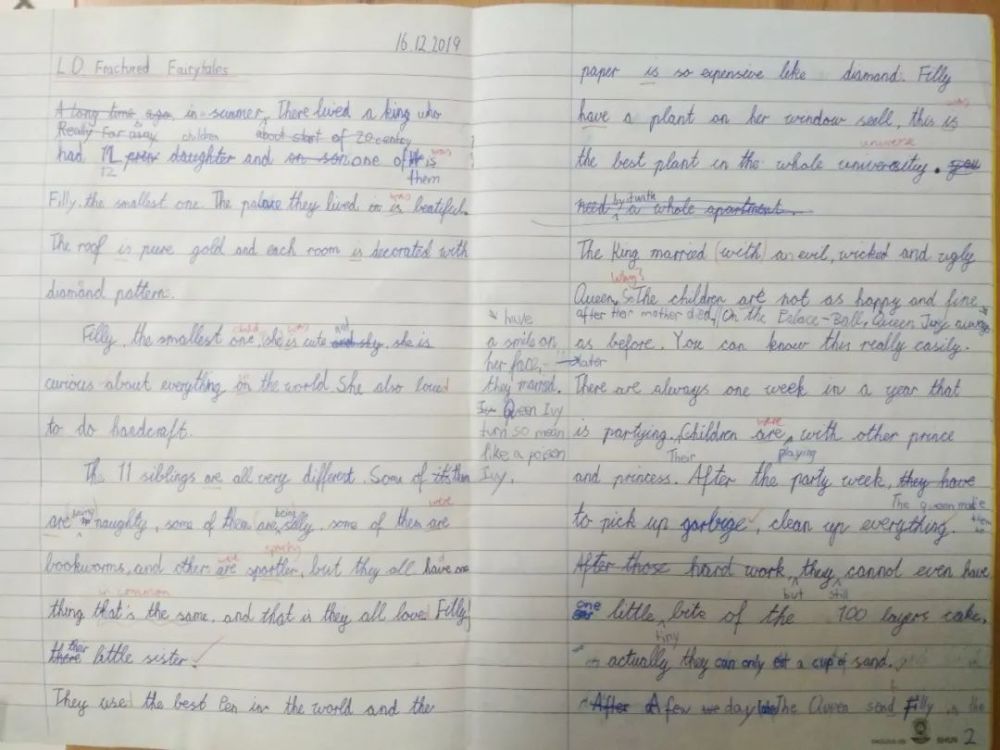 16.12.2019
L.O. Fractured Fairytales
A long time ago in summer, There lived a king who
Really far away children about start of 20 century
had 12 daughter and one of is was
12 them
Filly, the smallest one. The palace they lived in is was beatiful.
The roof is pure gold and each room is decorated with
diamond pattern.
Filly, the smallest one child, she is was cute and not shy, she is
curious about everything in the world She also loved
to do handcraft.
The 11 siblings are all very different. Some of them
are being naughty, some of them are being silly, some of them are were
bookworms, and other are sportler sporty, but they all have one
thing that's the same in common, and that is they all loved Filly
there ther little sister.
They used the best Pen in the world and the
paper is so expensive like diamond. Filly
have a plant on her window seell, this is was
the best plant in the whole univercity universe.
need a whole apartment.
The King married (with) an evil, wicked and ugly
Why?
Queen, The children are not as happy and fine
after Her mother died, On the Palace-Ball, Queen Ivy always
as before. You can know this really easily.
* have
a smile on
her face,
later
they married.
Queen Ivy
turn so mean
like a poison
Ivy.
There are always one week in a year that
is partying. Children are were playing with other prince
Their
and princess. After the party week, they have
The queen made them to
to pick up garbige, clean up everything.
After those hard work, they cannot even have
but still
one little bite of the 100 layers cake,
tiny
actually they can only eat a cup of sand.
After A few day The Queen send Filly in the
2